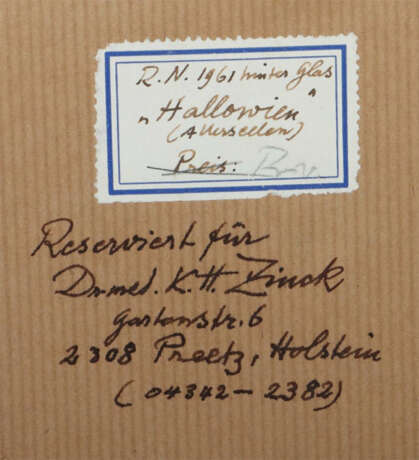 R.N. 1961 hinter Glas
„Hallowien"
(Allerseelen)
Preis:
Reserviert für
Dr. med. K.H. Zinck
Gartenstr. 6
2308 Preetz, Holstein
(04342-2382)